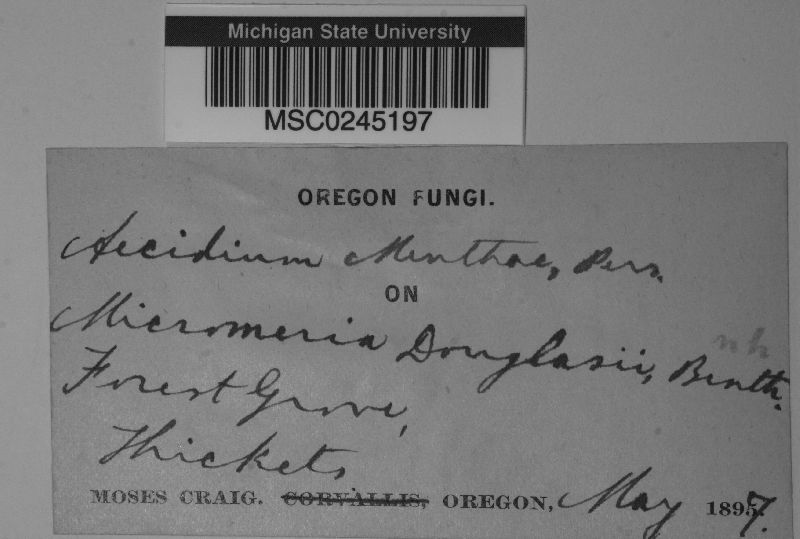 Michigan State University
MSC0245197
OREGON FUNGI.
Aecidium Menthae, Pers.
ON
nh
Micromeria Douglasii, Benth.
Forest Grove,
Thickets,
MOSES CRAIG. CORVALLIS, OREGON, May 1897.